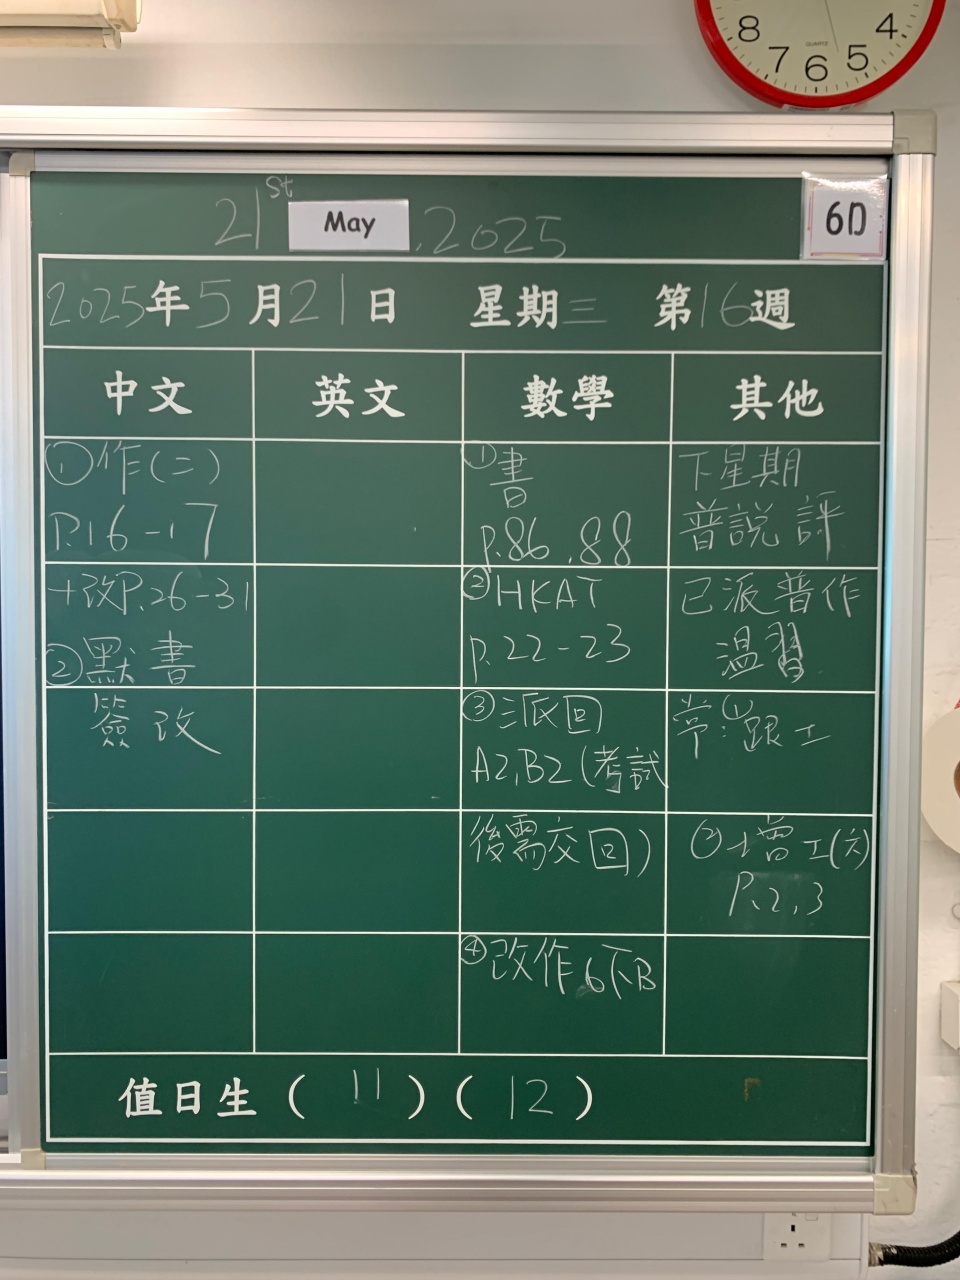 8 7 6 5 4
QUARTZ
21st May, 2025
6D
2025年5月21日 星期三 第16週
中文 英文 數學 其他
①作(二)
P.16-17
+改P.26-31
②默書
簽改
①書
p.86,88
②HKAT
p.22-23
③派回
A2,B2(考試
後需交回)
④改作6下B
下星期
普說評
已派普作
溫習
常:①跟工
②工(六)
P.2,3
值日生(11)(12)